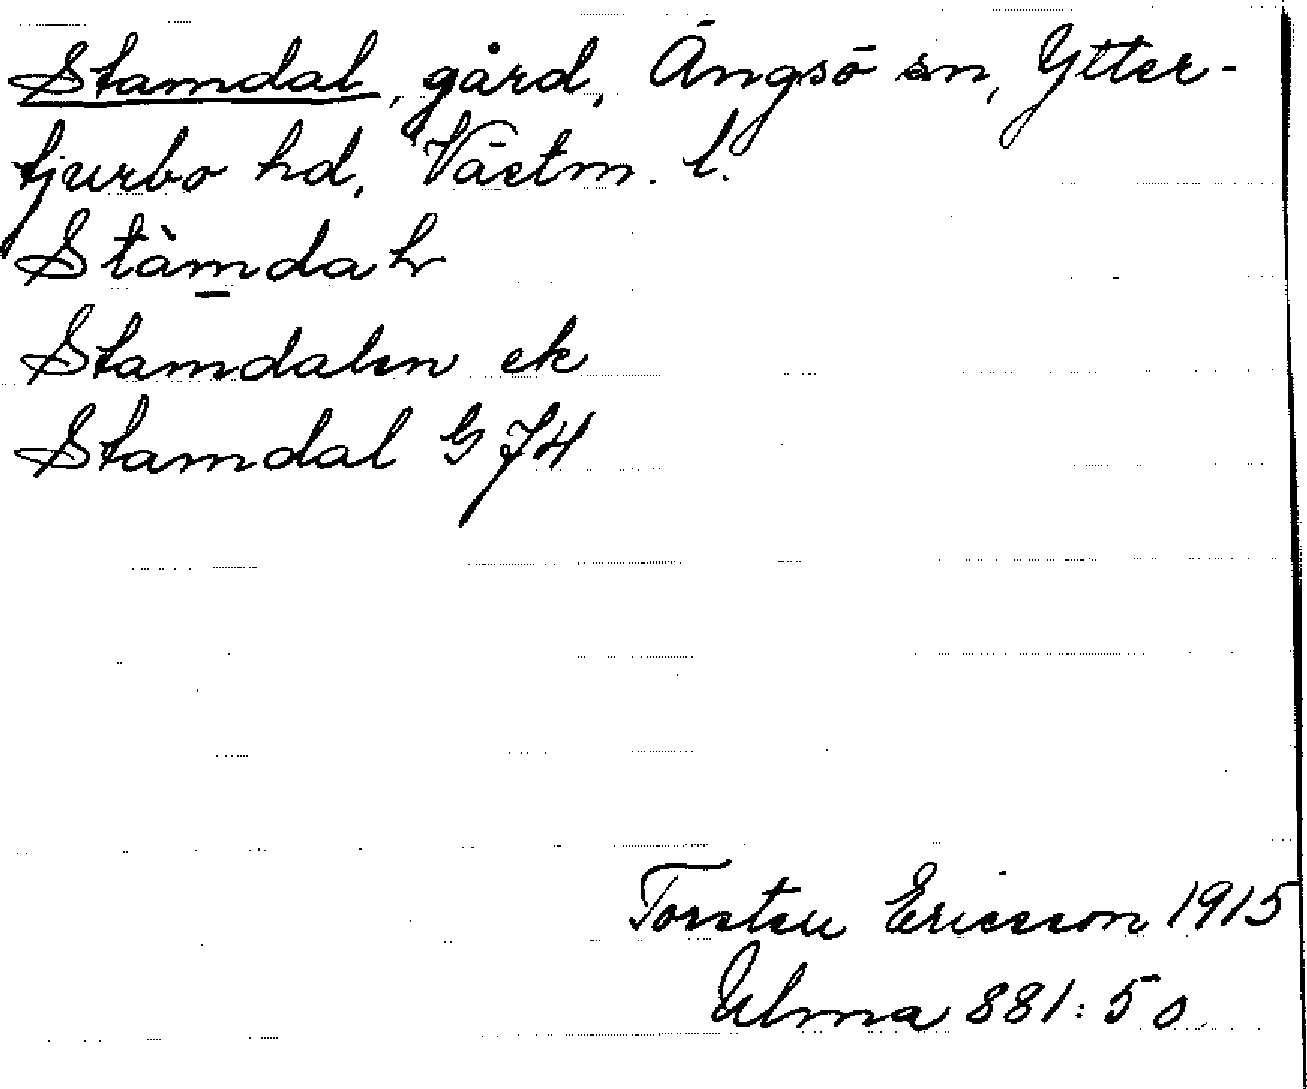 Stamdal, gård, Ängsö sn, Ytter-
tjurbo hd, Västm. l.
Stàmdaɫ
Stamdalen ek
Stamdal G 74
Torsten Ericsson 1915
Ulma 881:50